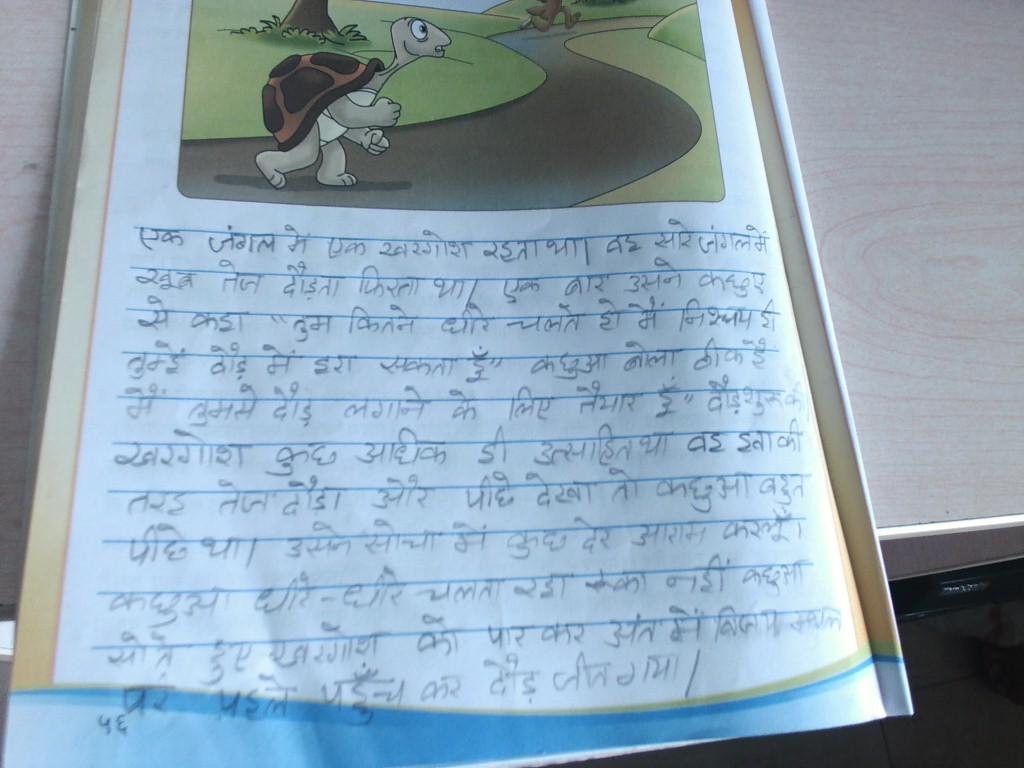 एक जंगल में एक खरगोश रहता था। वह सारे जंगल में
खूब तेज दौड़ता फिरता था। एक बार उसने कछुए
से कहा "तुम कितने धीरे चलते हो मैं निश्चय ही
तुम्हें दौड़ में हरा सकता हूँ" कछुआ बोला ठीक है
मैं तुमसे दौड़ लगाने के लिए तैयार हूँ" दौड़ शुरू की
खरगोश कुछ अधिक ही उत्साहित था वह हवा की
तरह तेज दौड़ा और पीछे देखा तो कछुआ बहुत
पीछे था। उसने सोचा में कुछ देर आराम करलूँ।
कछुआ धीरे-धीरे चलता रहा रुका नहीं कछुआ
सोते हुए खरगोश को पार कर अंत में विजय स्थल
पर पहले पहुँच कर दौड़ जीत गया।
५६